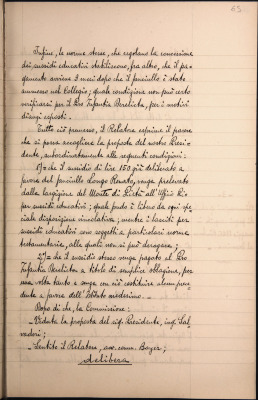 63
Infine, le norme stesse, che regolano la concessione
dei sussidi educativi stabiliscono, fra altro, che il pa-
gamento avviene 3 mesi dopo che il fanciullo è stato
ammesso nel Collegio; quale condizione non può certo
verificarsi per il Pro Infantia Derelicta, per i motivi
dianzi esposti.
Tutto ciò premesso, il Relatore esprime il parere
che si possa accogliere la proposta del nostro Presi-
dente, subordinatamente alle seguenti condizioni:
1°/= che il sussidio di lire 150 già deliberato a
favore del fanciullo Longo Renato, venga prelevato
dalla largizione del Monte di Pietà all'Ufficio
per sussidi educativi; quale fondo è libero da ogni spe-
ciale disposizione vincolativa; mentre i lasciti per
sussidi educativi sono soggetti a particolari norme
testamentarie, alle quali non si può derogare;
2°/= che il sussidio stesso venga pagato al Pro
Infantia Derelicta a titolo di semplice oblazione, per
una volta tanto e senza con ciò costituire alcun prece-
dente a favore dell'Istituto medesimo. —
Dopo di che, la Commissione:
— Veduta la proposta del sig. Presidente, ing. Sal-
vadori;
— Sentito il Relatore, avv. comm.
delibera